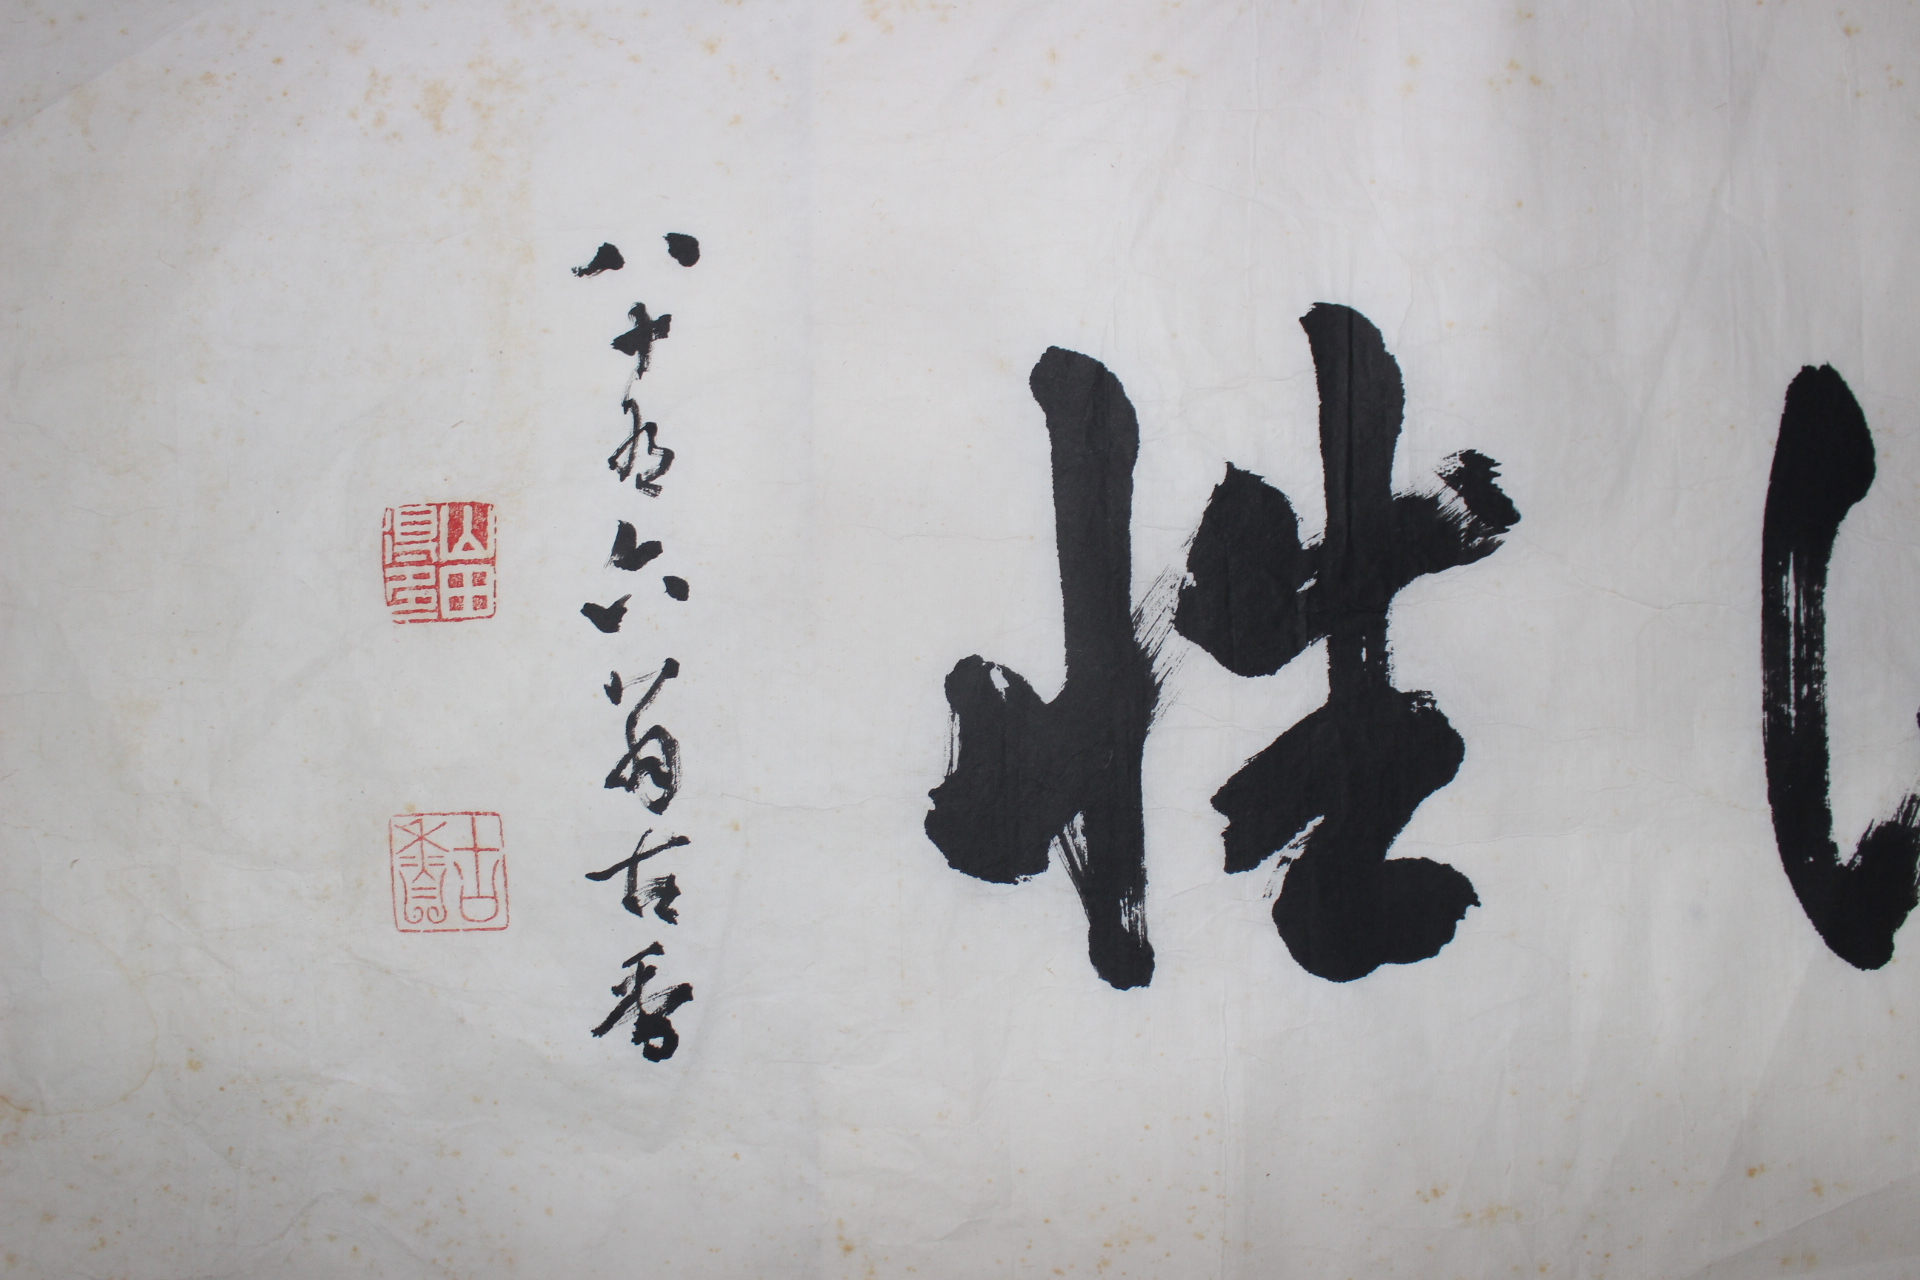 性
八十有六翁古香
山田得多
古香